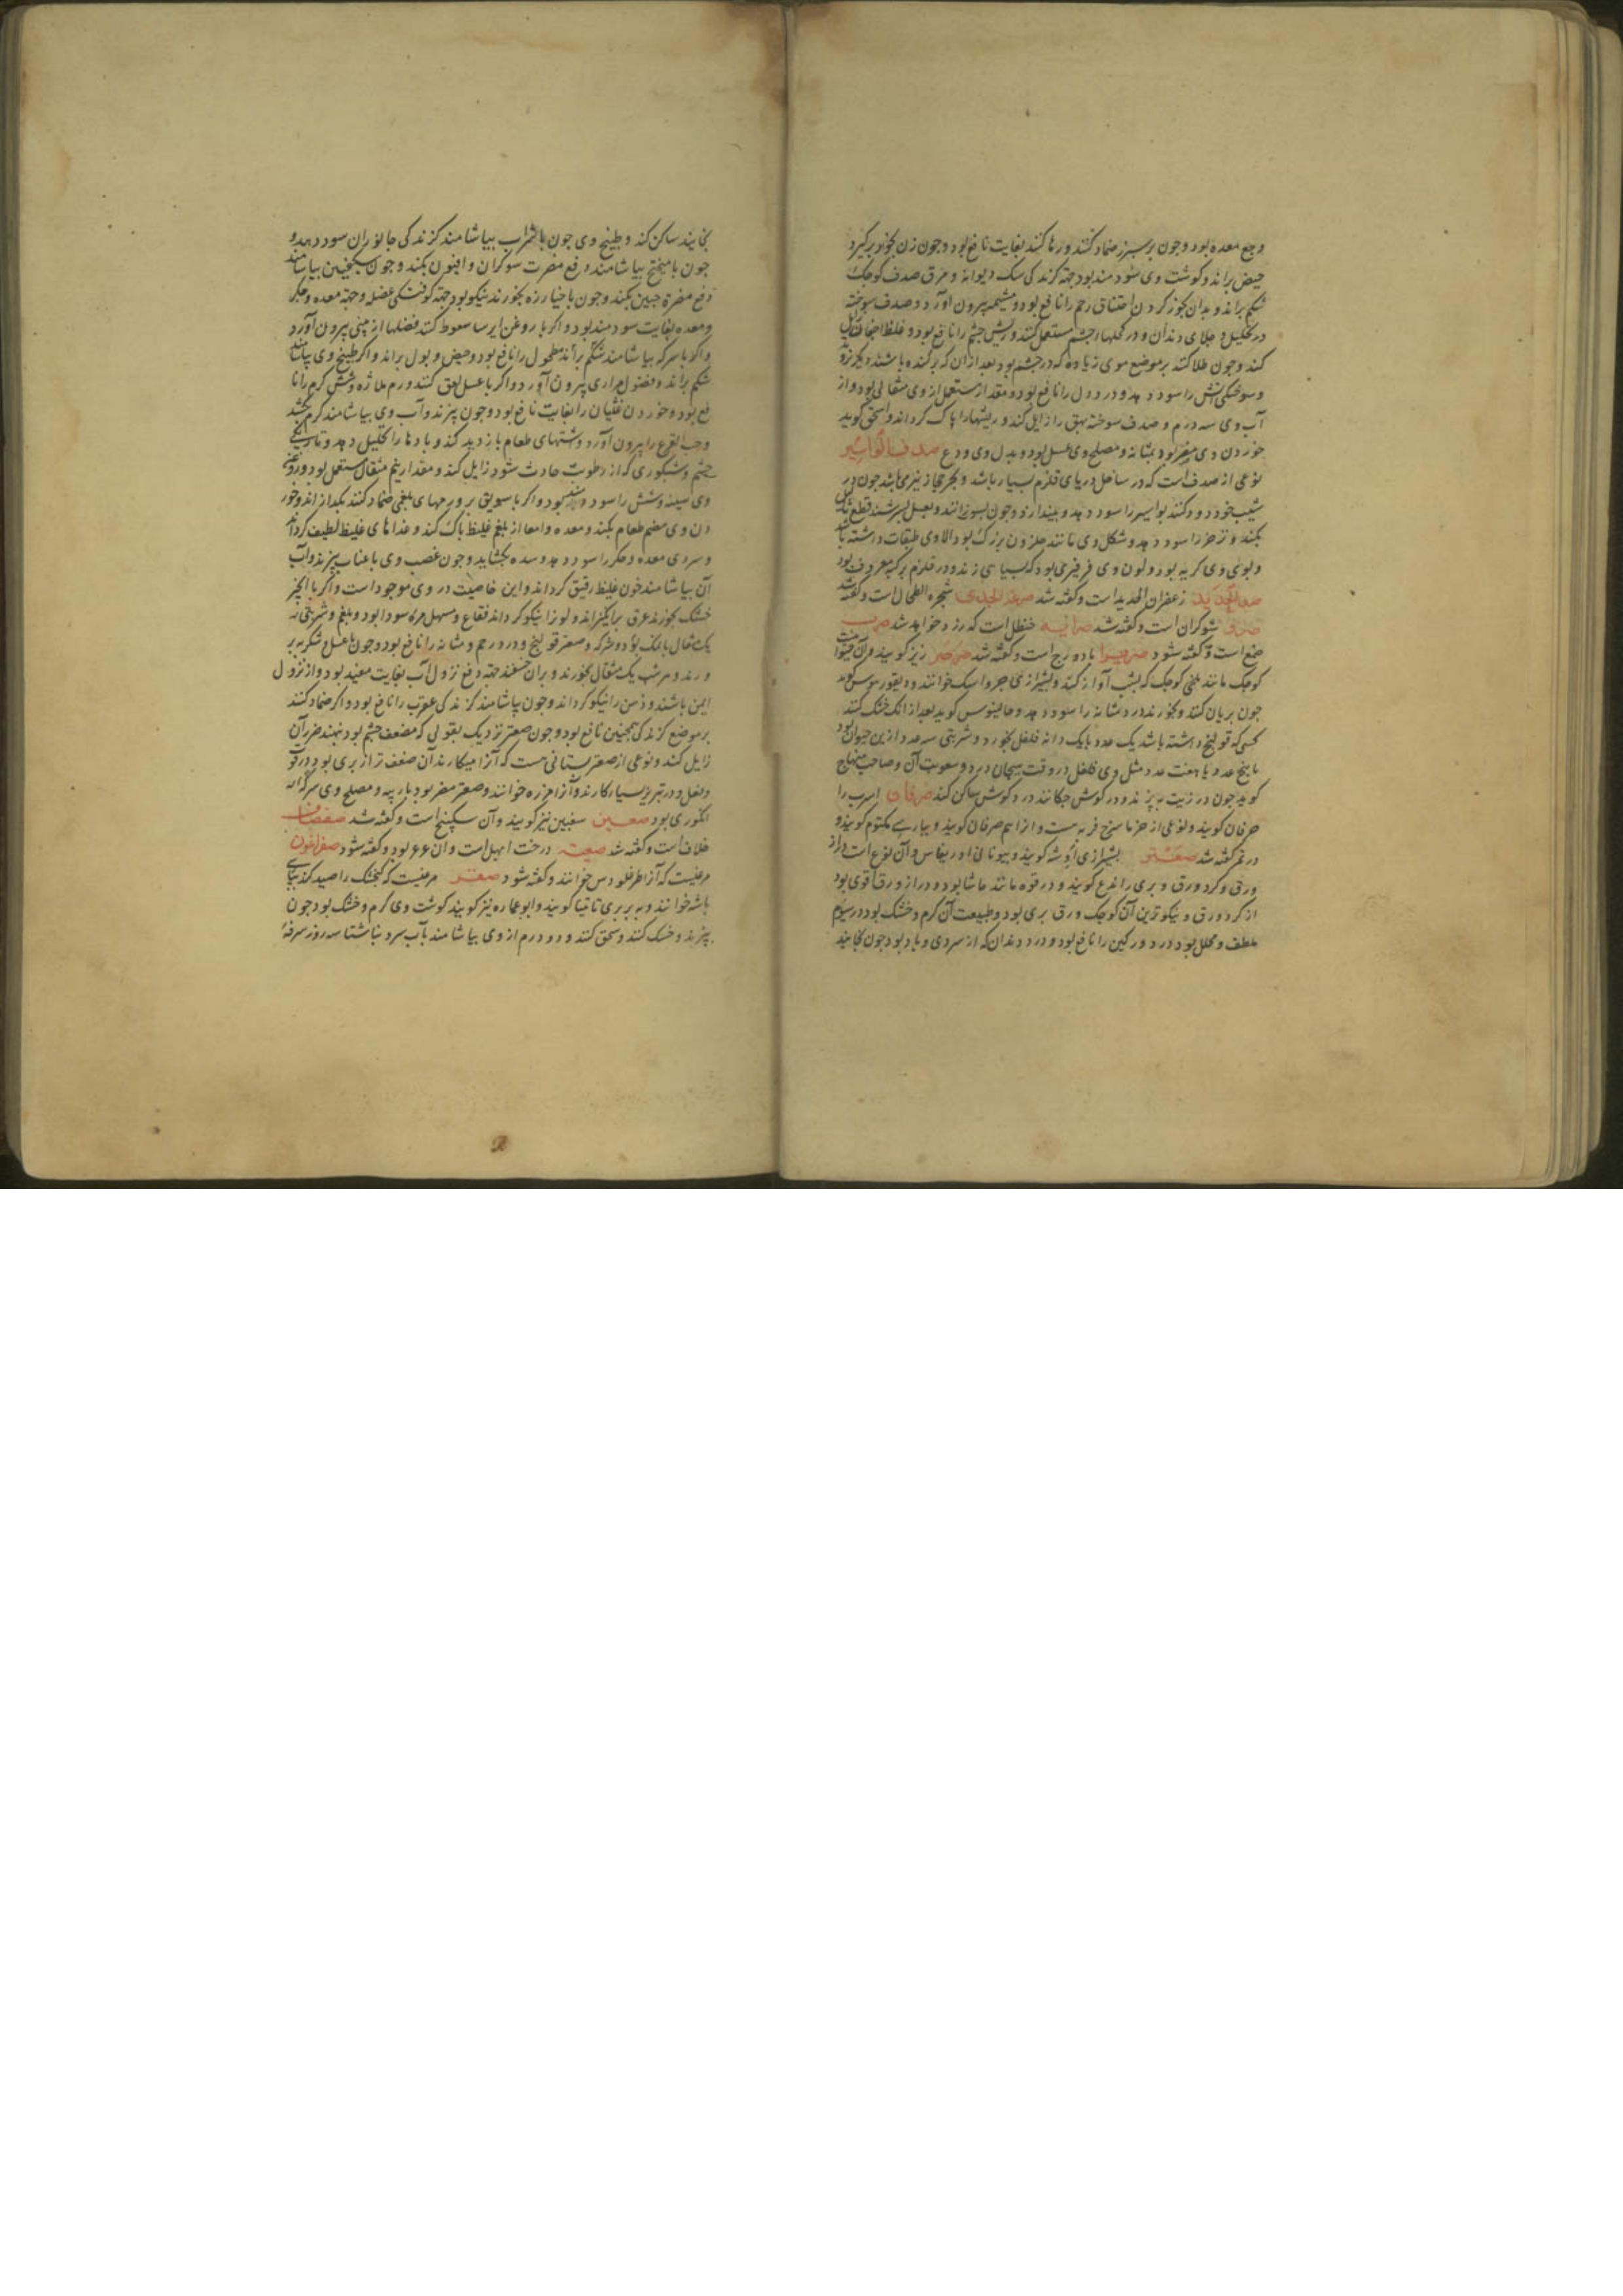 وجع معده بود و چون بر سپرز ضماد کنند و رها کنند بغایت نافع بود و چون زن بخود برگیرد
حیض براند و گوشت وی سودمند بود جهة گزندگی سک دیوانه و مرق صدف کوچک
شکم براند و بدان بخور کردن اختناق رحم را نافع بود و مشیمه بیرون آورد و صدف سوخته
در تحلیل و جلای دندان و در کحلها در چشم مستعمل کنند و ریش چشم را نافع بود و غلظ اجفان
کند و چون طلا کنند بر موضع موی زیاده که در چشم بود بعد از آن که برکنده باشند دیگر نروید
و سوختگی آتش را سود دهد و درد دل را نافع بود و مقدار مستعمل از وی مثقالی بود و از
آب وی سه درم و صدف سوخته بهق را زایل کند و ریشها را پاک گرداند و اسحق گوید
خوردن وی مضر بود بمثانه و مصلح وی عسل بود و بدل وی ودع صدف البواسیر
نوعی از صدف است که در ساحل دریای قلزم بسیار باشد و بحر حجاز نیز می باشد چون در
شیب خود دود کنند بواسیر را سود دهد و بیندازد و چون بسوزانند و بعسل بسرشند قطع ثآلیل
بکند و زحر را سود دهد و شکل وی مانند حلزون بزرگ بود الا وی طبقات داشته باشد
و بوی وی کریه بود و لون وی فرفیری بود که بسیاهی زند و در قلزم برکبه معروف بود
صدأ الحدید زعفران الحدید است و گفته شد صریمة الجدی شجره الطحال است و گفته شد
صدو شوکران است و گفته شد صرایه حنظل است که زرد خواهد شد صرب
صمغ است و گفته شود صریرا بادورج است و گفته شد صرصر زیز گویند و آن حیوانیست
کوچک مانند ملخی کوچک که بشب آواز کند و بشیرازی جرواسک خوانند و دیسقوریدوس گوید
چون بریان کنند و بخورند درد مثانه را سود دهد و جالینوس گوید بعد از آنک خشک کنند
کسی که قولنج داشته باشد یک عدد با یک دانه فلفل بخورد و شربتی سه عدد از این حیوان بود
با پنج عدد یا هفت عدد مثل وی فلفل در وقت هیجان درد و صعوبت آن و صاحب منهاج
گوید چون در زیت بپزند و در گوش چکانند درد گوش ساکن کند صرفان اسرب را
صرفان گویند و نوعی از خرما سرخ فربه هست و او را هم صرفان گویند و بپارسی مکتوم گویند و
در تمر گفته شد صعتر بشیرازی اوشه گویند و بیونانی اوریغانس و آن نوع است دراز
ورق و گرد ورق و بری را ندغ گویند و در قوه مانند حاشا بود و دراز ورق قوی بود
از گرد ورق و نیکوترین آن کوچک ورق بری بود و طبیعت آن گرم و خشک بود در سیوم
ملطف و محلل بود درد ورکین را نافع بود و درد دندان که از سردی و باد بود چون بخایند
بخایند ساکن کند و طبیخ وی چون با شراب بیاشامند گزندگی جانوران سود دهد و
چون با میبختج بیاشامند دفع مضرت شوکران و افیون بکند و چون با سکنجبین بیاشامند
دفع مضرة جبین بکند و چون با خیارزه بخورند نیکو بود جهة کوفتگی عضله و جهة معده و جگر
و معده بغایت سودمند بود و اگر با روغن ایرسا سعوط کنند فضلها از بینی بیرون آورد
و اگر با سرکه بیاشامند شکم براند مطحول را نافع بود و حیض و بول براند و اگر طبیخ وی بیاشامند
شکم براند و فضول مراری بیرون آورد و اگر با عسل لعق کنند ورم ملازه و شش گرم را نا
فع بود و خوردن غثیان را بغایت نافع بود و چون بپزند و آب وی بیاشامند کرم بکشد
و حب القرع را بیرون آورد و شتهای طعام بازدید کند و بادها را تحلیل دهد و تاریکی
چشم و شبکوری که از رطوبت حادث شود زایل کند و مقدار پنج مثقال مستعمل بود و روغن
وی سینه و شش را سودمند بود و اگر با سویق بر ورمهای بلغمی ضماد کنند بگدازاند و خور
دن وی هضم طعام بکند و معده و امعا از بلغم غلیظ پاک کند و غذاهای غلیظ لطیف گرداند
و سردی معده و جگر را سود دهد و سده بگشاید و چون غصب وی با عناب بپزند و آب
آن بیاشامند خون غلیظ رقیق گرداند و این خاصیت در وی موجود است و اگر با انجیر
خشک بخورند عرق برانگیزاند و لون را نیکو گرداند فقاع و مسهل مره سودا بود و بلغم و شربتی از
یک مثقال با نمک بود و سرکه و صعتر قولنج و درد رحم و مثانه را نافع بود و چون با عسل و شکر بپر
ورند و هر شب یک مثقال بخورند و بر آن خسبند جهة دفع نزول آب بغایت مفید بود و از نزول
ایمن باشند و ذهن را نیکو گرداند و چون بیاشامند گزندگی عقرب را نافع بود و اگر ضماد کنند
بر موضع گزندگی همچنین نافع بود و چون صعتر نزدیک بقولی که مضعف چشم بود بنهند ضرر آن
زایل کند و نوعی از صعتر بستانی هست که آن را میکارند آن ضعف تر از بری بود در قو
و فعل و در تبریز بسیار کارند و آن را مرزه خوانند و صعتر مضر بود بارپه و مصلح وی سرکه
انگوری بود صعبین سغبین نیز گویند و آن سکبینج است و گفته شد صفصاف
خلاف است و گفته شد صعبه درخت ابهل است و آن عرعر بود و گفته شود صفراغون
مرغیست که آن را طرغلودس خوانند و گفته شود صقر مرغیست که گنجشک را صید کند بپارسی
باشه خوانند و به بربری تاتیا گویند و ابوعماره نیز گویند گوشت وی گرم و خشک بود چون
بپزند و خشک کنند و سحق کنند و دو درم از وی بیاشامند بآب سرد بناشتا سه روز سرفه